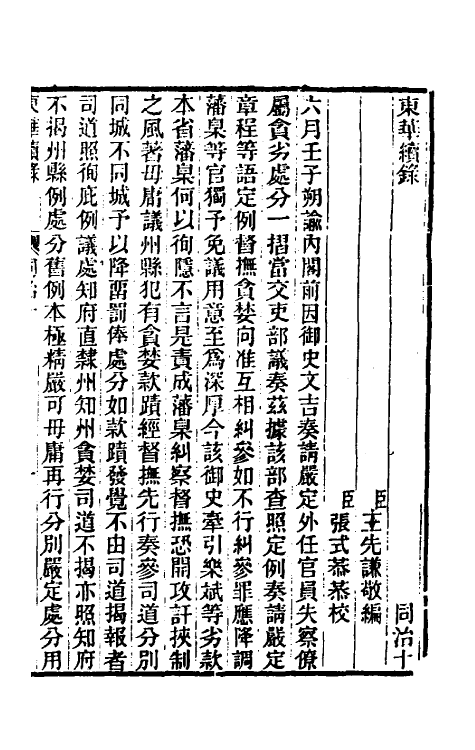 東華續錄　同治十
臣王先謙敬編
臣張式恭恭校
六月壬子朔諭內閣前因御史文吉奏請嚴定外任官員失察僚
屬貪劣處分一摺當交吏部議奏茲據該部查照定例奏請嚴定
章程等語定例督撫貪婪向准互相糾參如不行糾參罪應降調
藩臬等官獨予免議用意至爲深厚今該御史牽引樂斌等劣款
本省藩臬何以徇隱不言是責成藩臬糾察督撫恐開攻訐挾制
之風著毋庸議州縣犯有貪婪款蹟經督撫先行奏參司道分別
同城不同城予以降留罰俸處分如款蹟發覺不由司道揭報者
司道照徇庇例議處知府直隸州知州貪婪司道不揭亦照知府
不揭州縣例處分舊例本極精嚴可毋庸再行分別嚴定處分用
東華續錄　同治十